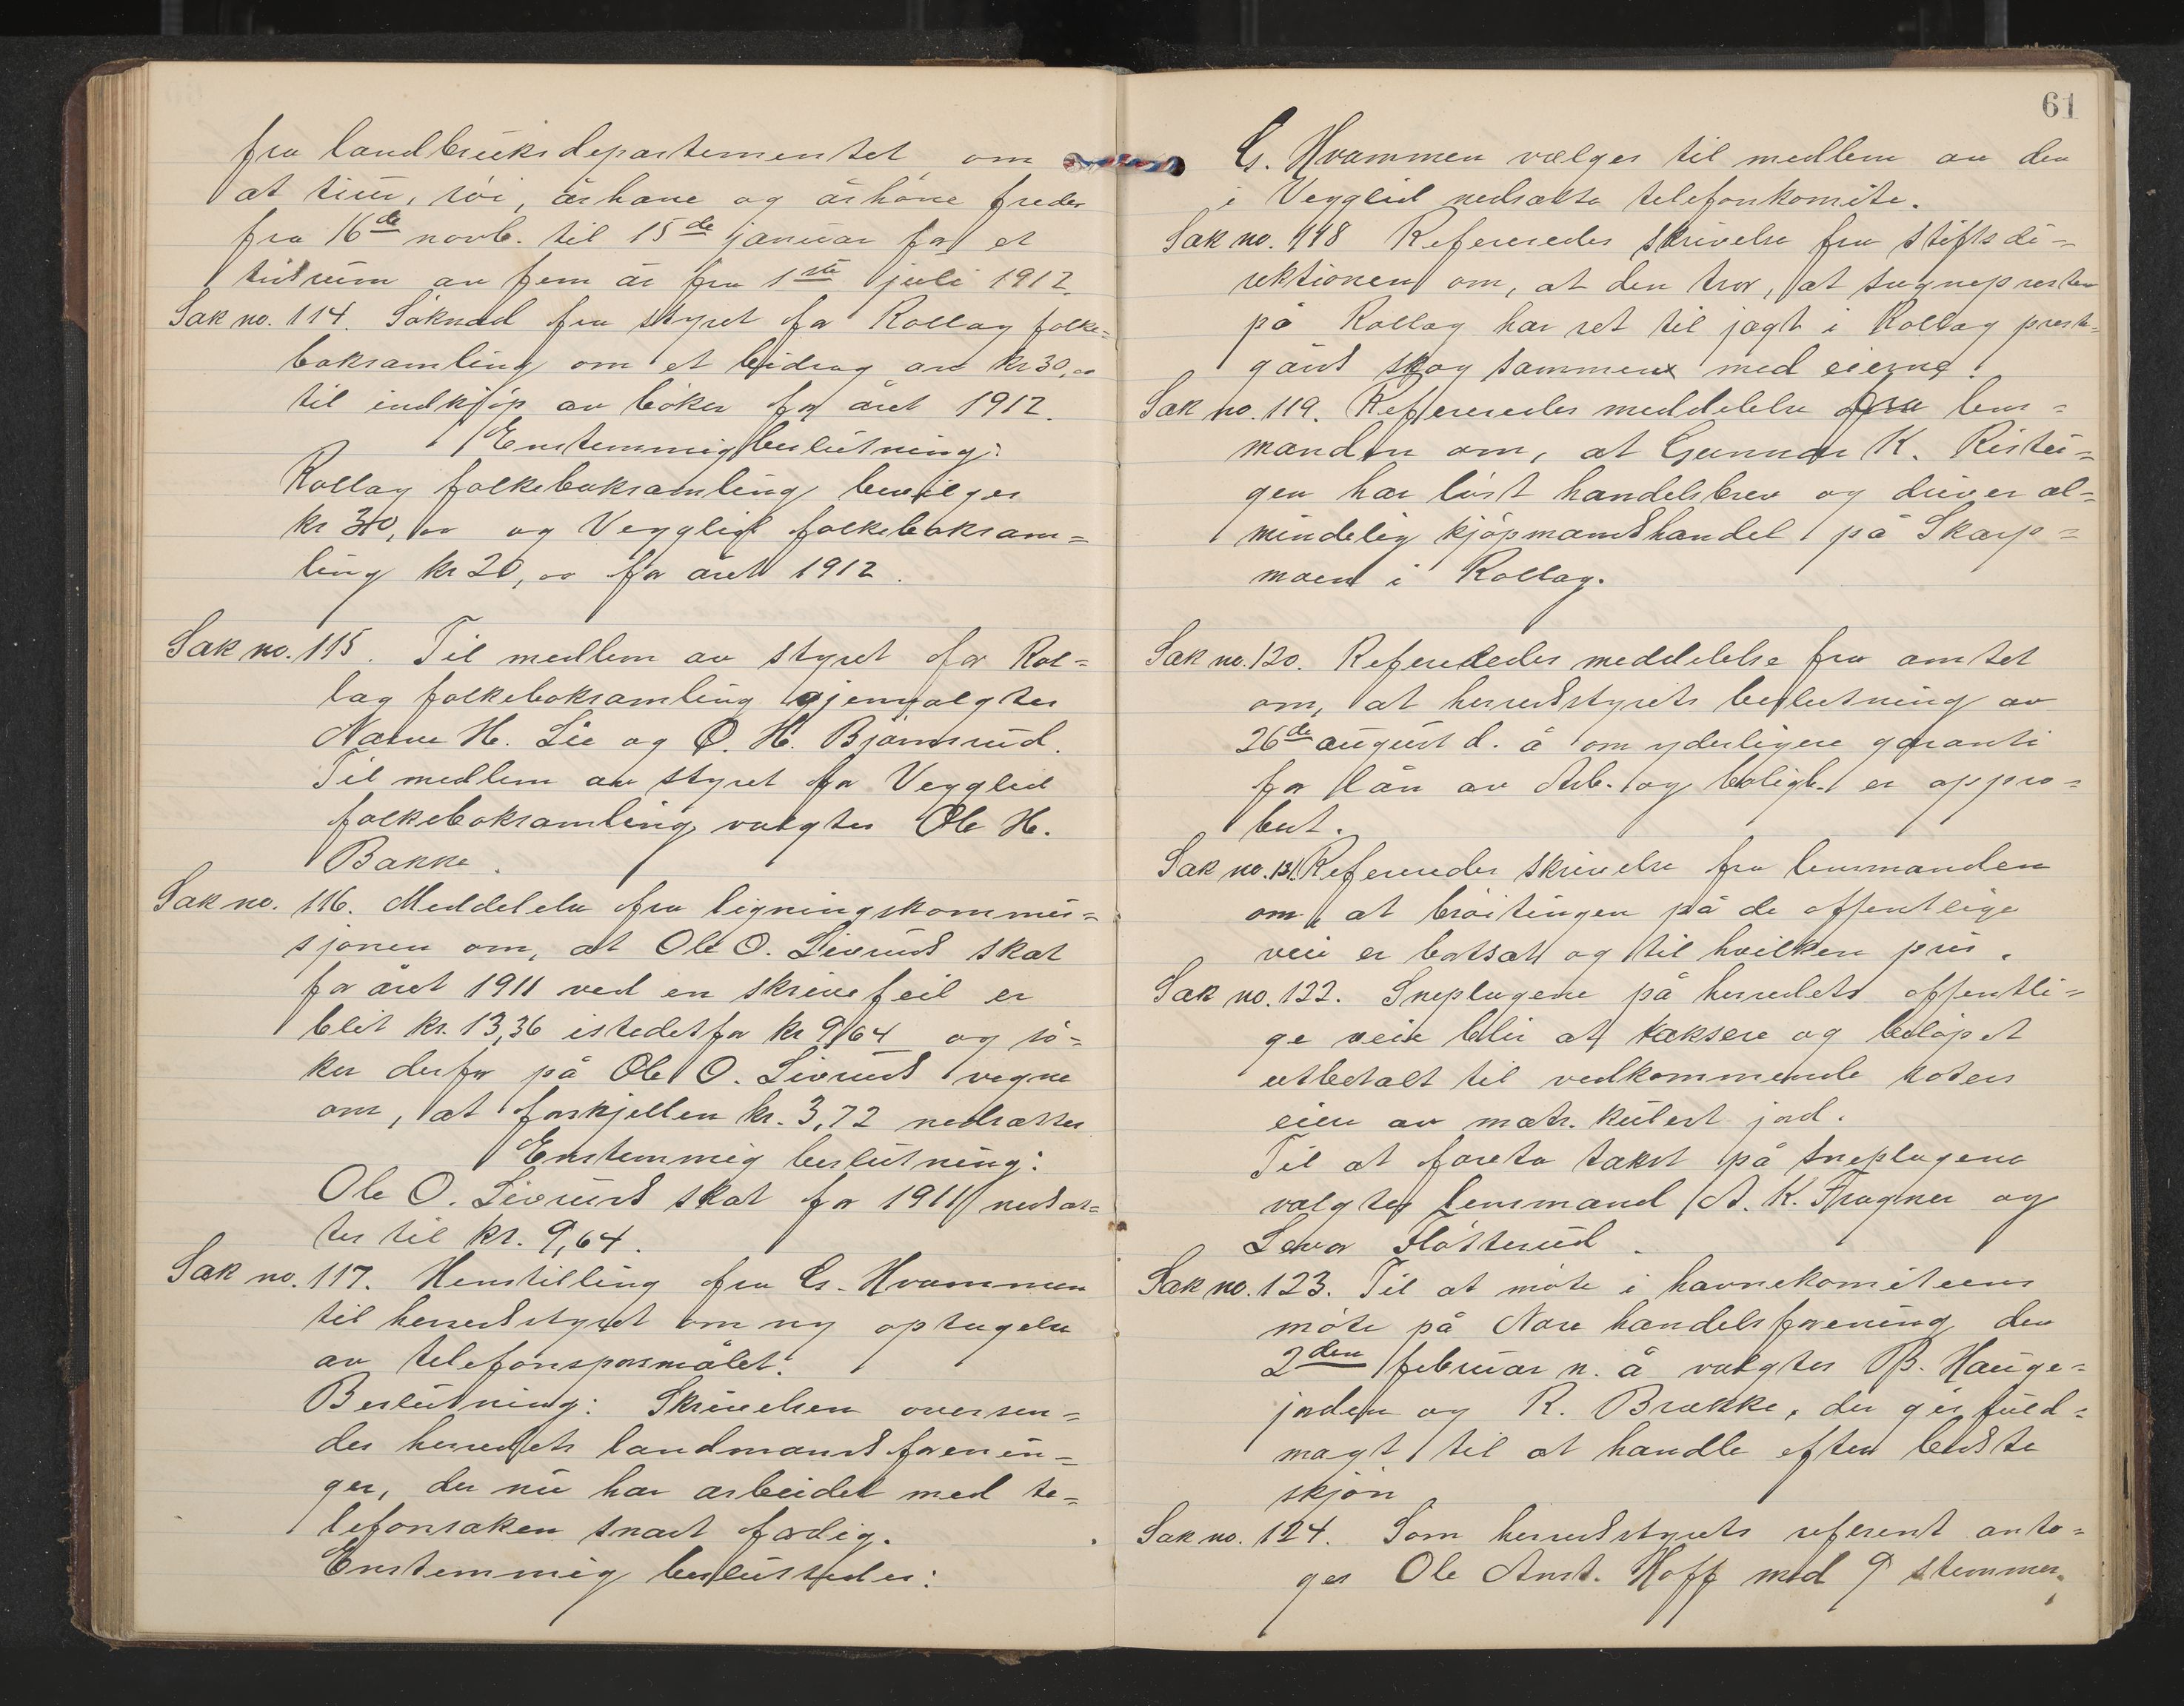 fra landbruksdepartementet om
at tiur, røi, århane og århøne freder
fra 16de novb. til 15de januar for et
tidsrum av fem år fra 1ste juli 1912.
Sak no. 114. Søknad fra styret for Rollag folke=
boksamling om et bidrag av kr 30,00
til indkjøp av bøker for året 1912.
Enstemmig beslutning:
Rollag folkeboksamling bevilges
kr 30,00 og Vegglid folkeboksam=
ling kr 20,00 for året 1912.
Sak no. 115. Til medlem av styret for Rol=
lag folkeboksamling gjenvalgtes
Narve H. Lie og O. H. Bjørnsrud.
Til medlem av styret for Vegglid
folkeboksamling valgtes Ole H.
Bakke.
Sak no. 116. Meddelelse fra ligningskommis=
sjonen om, at Ole O. Livruds skat
for året 1911 ved en skrivefeil er
blit kr. 13,36 istedetfor kr 9,64 og sø=
ker derfor på Ole O. Livruds vegne
om, at forskjellen kr. 3,72 nedsættes
Enstemmig beslutning:
Ole O. Livruds skat for 1911 nedsæt=
tes til kr. 9,64.
Sak no. 117. Henstilling fra G. Hvammen
til herredsstyret om ny optagelse
av telefonspørsmålet.
Beslutning: Skrivelsen oversen=
des herredets landmandsforenin=
ger, der nu har arbeidet med te=
lefonsaken snart færdig.
Enstemmig besluttedes:
61
G. Hvammen vælges til medlem av den
i Vegglid nedsatte telefonkomite.
Sak no. 118 Refereredes skrivelse fra stiftsdi=
rektionen om, at den tror, at sognepresten
på Rollag har ret til jagt i Rollag preste=
gårds skog sammen med eierne.
Sak no. 119. Refereredes meddelelse fra lens=
manden om, at Gunnar K. Ristei=
gen har løst handelsbrev og driver al=
mindelig kjøpmandshandel på Skarp=
moen i Rollag.
Sak no. 120. Refereredes meddelelse fra amtet
om, at herredsstyrets beslutning av
26de august d. å om yderligere garanti
for lån av Arb. og boligb. er appro=
bert.
Sak no. 121. Refereredes skrivelse fra lensmanden
om, at brøitingen på de offentlige
veie er bortsat og til hvilken pris.
Sak no. 122. Sneplogene på herredets offentli=
ge veie blir at taksere og beløpet
utbetalt til vedkommende rotes
eiere av matr. kulert jord.
Til at foreta takst på sneplogene
valgtes lensmand A. K. Fragner og
Levor Fløsterud.
Sak no. 123. Til at møte i havnekomiteens
møte på Nore handelsforening den
2den februar n. å valgtes B. Hauge=
jorden og R. Brække, der gis fuld=
magt til at handle efter bedste
skjøn
Sak no. 124. Som herredsstyrets referent anta=
ges Ole Anst. Hoff med 9 stemmer,